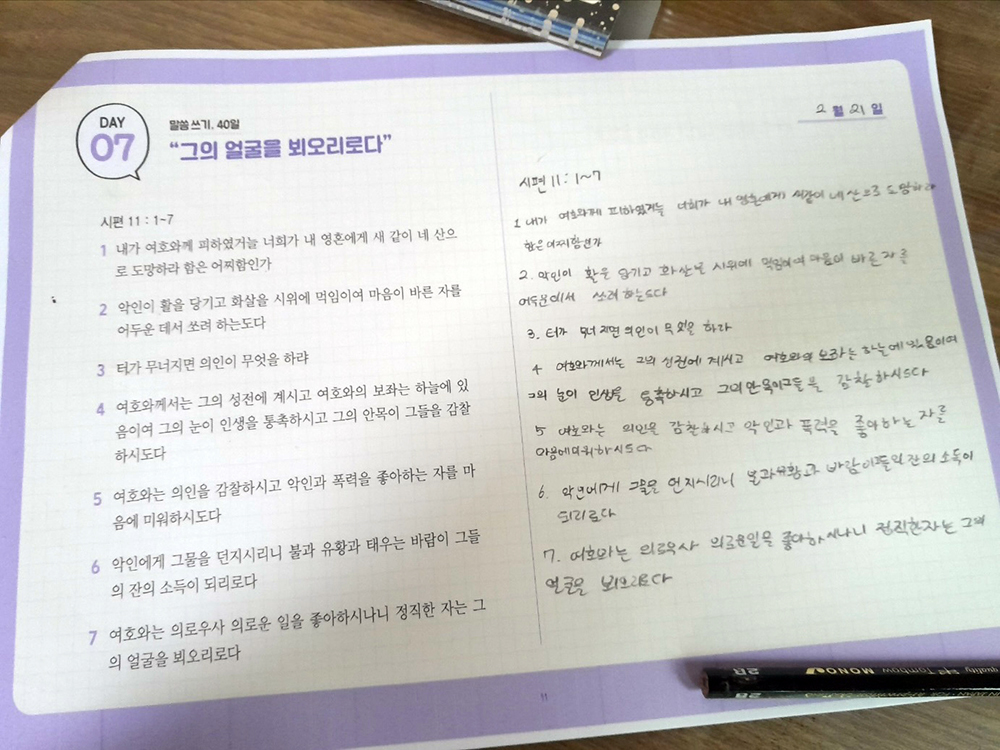 DAY
07
말씀 쓰기, 40일
“그의 얼굴을 뵈오리로다”
시편 11 : 1~7
1 내가 여호와께 피하였거늘 너희가 내 영혼에게 새 같이 네 산으
로 도망하라 함은 어찌함인가
2 악인이 활을 당기고 화살을 시위에 먹임이여 마음이 바른 자를
어두운 데서 쏘려 하는도다
3 터가 무너지면 의인이 무엇을 하랴
4 여호와께서는 그의 성전에 계시고 여호와의 보좌는 하늘에 있
음이여 그의 눈이 인생을 통촉하시고 그의 안목이 그들을 감찰
하시도다
5 여호와는 의인을 감찰하시고 악인과 폭력을 좋아하는 자를 마
음에 미워하시도다
6 악인에게 그물을 던지시리니 불과 유황과 태우는 바람이 그들
의 잔의 소득이 되리로다
7 여호와는 의로우사 의로운 일을 좋아하시나니 정직한 자는 그
의 얼굴을 뵈오리로다
2 월 21 일
시편 11 : 1~7
1 내가 여호와께 피하였거늘 너희가 내 영혼에게 새같이 네 산으로 도망하라
함은 어찌함인가
2. 악인이 활을 당기고 화살을 시위에 먹임이여 마음이 바른 자를
어두운에서 쏘려 하는도다
3. 터가 무너지면 의인이 무엇을 하랴
4 여호와께서는 그의 성전에 계시고 여호와의 보좌는 하늘에 있음이여
그의 눈이 인생을 통촉하시고 그의 안목이 그들을 감찰하시도다
5 여호와는 의인을 감찰하시고 악인과 폭력을 좋아하는 자를
마음에 미워하시도다
6. 악인에게 그물을 던지시리니 불과 유황과 바람이 그들의 잔의 소득이
되리로다
7. 여호와는 의로우사 의로운일을 좋아하시나니 정직한자는 그의
얼굴을 뵈오리로다
11
2B MONO Tombow quality